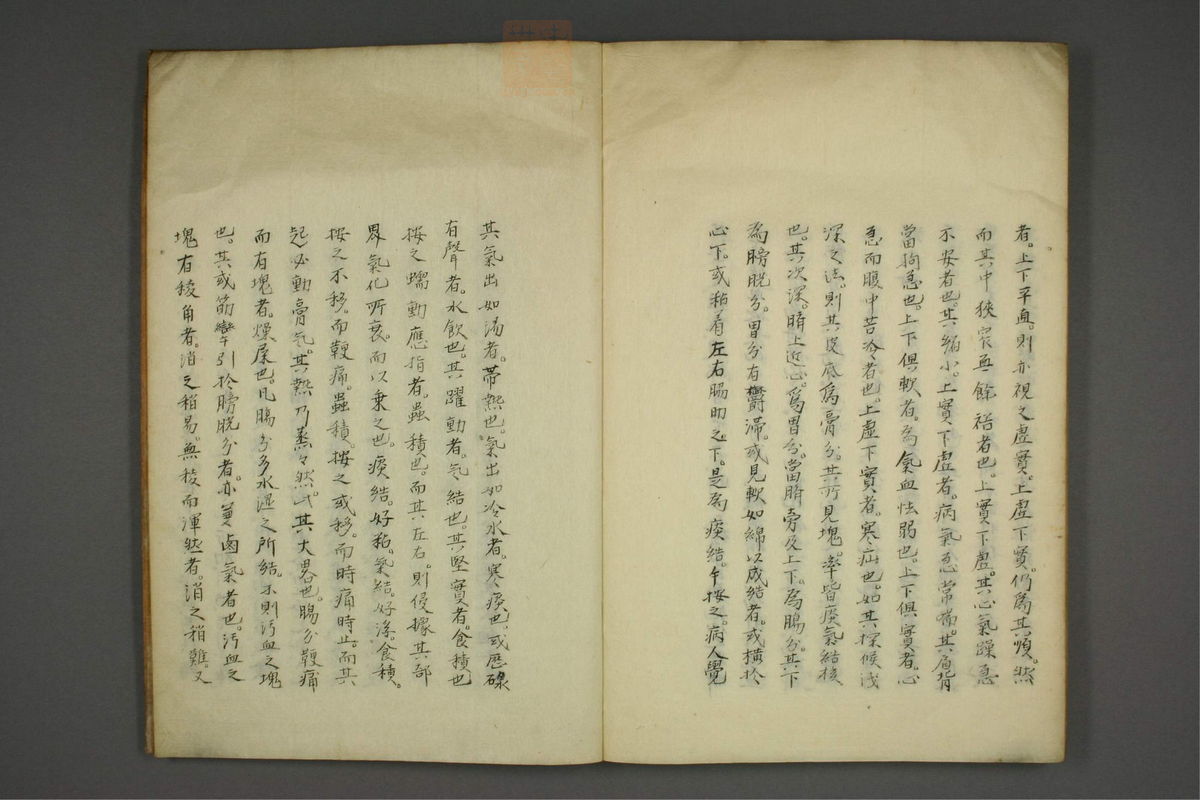 者。上下平直。則亦視之虛實。上虛下實。仍為其順。然
而其中狹窄無餘裕者也。上實下虛。其心氣躁急
不安者也。其縮小。上實下虛者。病氣急常喘。其肩背
當拘急也。上下俱軟者。為氣血怯弱也。上下俱實者。心
急而腹中苦冷者也。上虛下實者。寒疝也。如其探候淺
深之法。則其皮底為膏分。其所見塊。率皆痰氣結核
也。其次深。臍上近心。為胃分。當臍旁及上下。為腸分。其下
為膀胱分。胃分有鬱滯。或見軟如綿以成結者。或橫於
心下。或粘着左右脇肋之下。是為痰結。乍按之。病人覺
其氣出如湯者。帶熱也。氣出如冷水者。寒痰也。或歷碌
有聲者。水飲也。其躍動者。氣結也。其堅實者。食積也
按之蠕動應指者。蟲積也。而其左右。則侵據其部
界。氣化所衰。而以乘之也。痰結。好粘。氣結。好浮。食積。
按之不移。而鞕痛。蟲積。按之或移。而時痛時止。而其
起必動膏氣。其熱乃蒸々然。此其大畧也。腸分鞕痛
而有塊者。燥屎也。凡腸分多水濕之所結。不則污血之塊
也。其或筋攣引於膀胱分者。亦鹵氣者也。污血之
塊有稜角者。消之稍易。無稜而渾然者。消之稍難。又